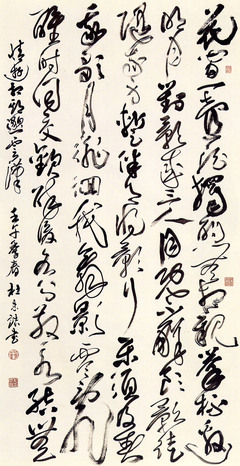 花間一壺酒獨酌無相親舉杯邀
明月對影成三人月既不解飲影徒
隨我身暫伴月將影行樂須及春
我歌月徘徊我舞影零亂
醒時同交歡醉後各分散永結無
情遊相期邈雲漢 壬午 春 書